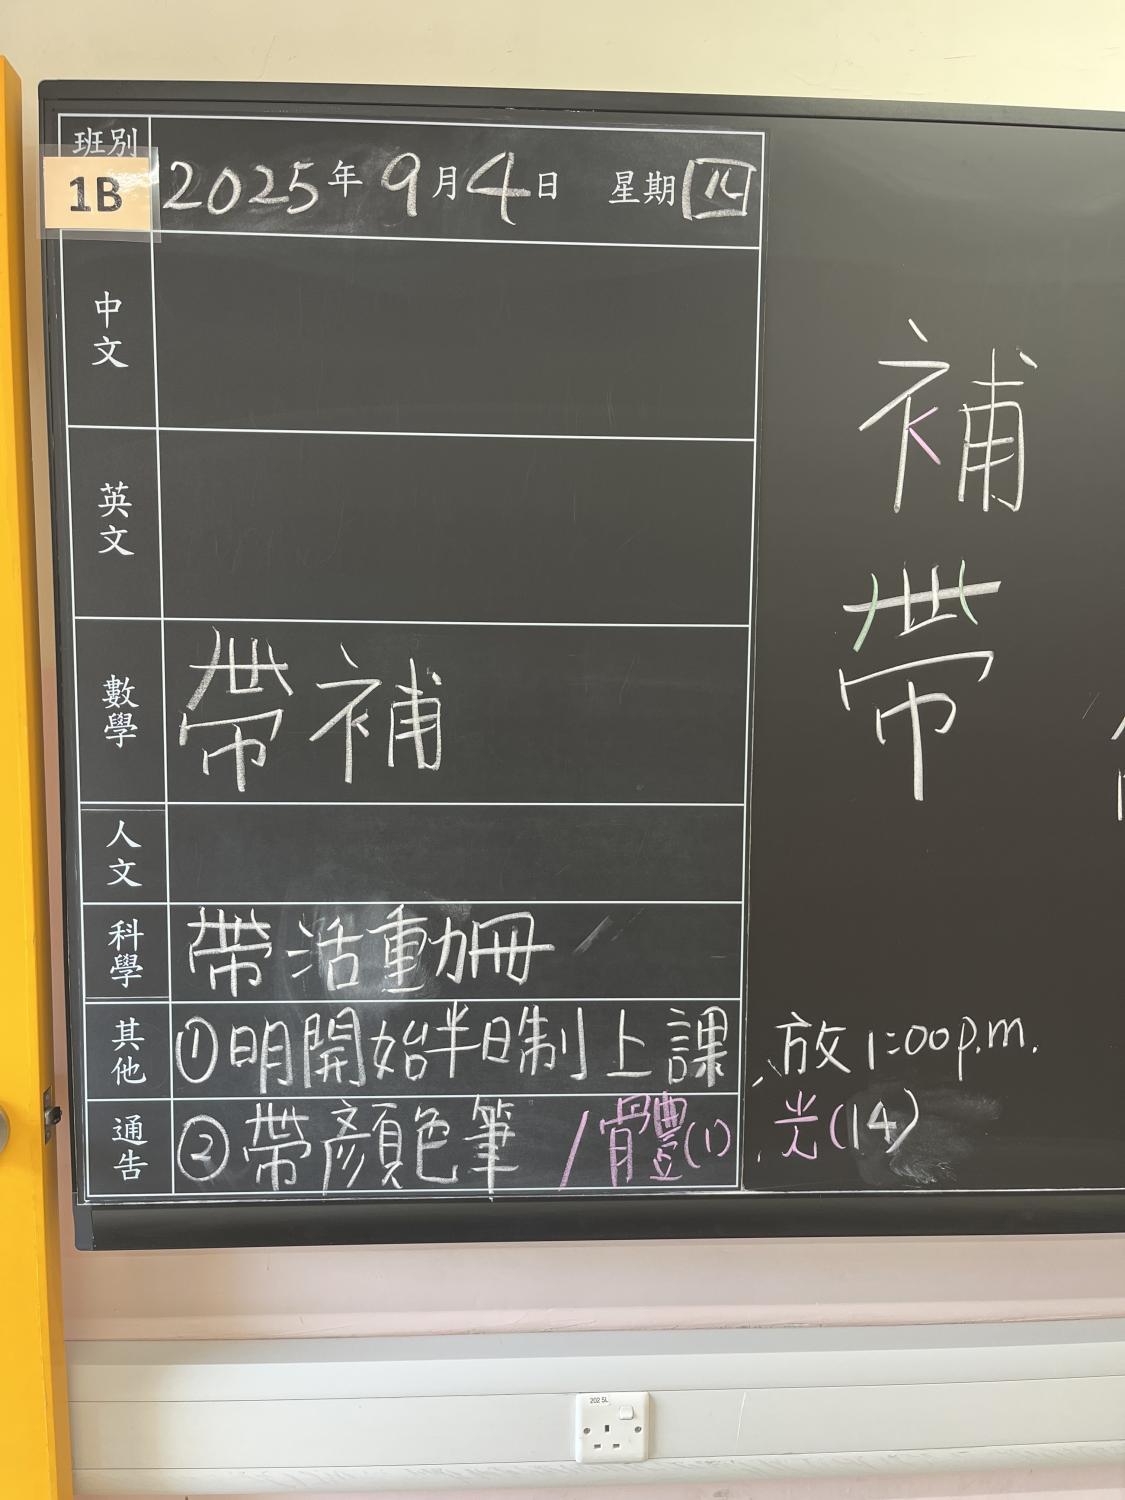 班別
1B
2025年9月4日 星期四
中文
英文
數學
帶補
人文
科學
帶活動冊
其他
①明開始半日制上課
通告
②帶顏色筆/體(1)
補
帶
放1:00p.m.
光(14)
202 5L